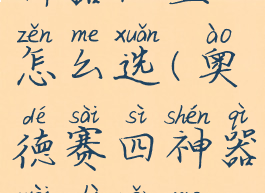 zěn me xuǎn ào
怎么选(奥
dé sài sì shén qì
德赛四神器